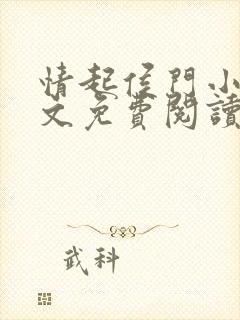 情起侯門小
文免費閱讀
武科